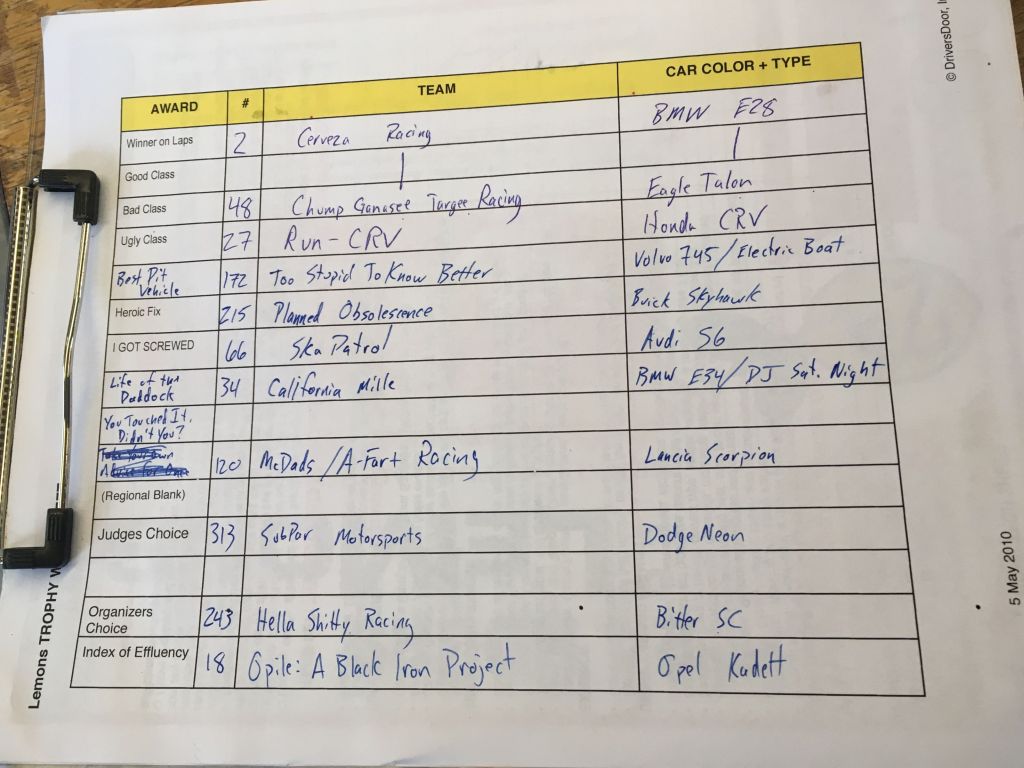 © DriversDoor, I
AWARD # TEAM CAR COLOR + TYPE
Winner on Laps 2 Cerveza Racing BMW E28
Good Class
Bad Class 48 Chump Ganasee Targee Racing Eagle Talon
Ugly Class 27 Run-CRV Honda CRV
Best Pit Vehicle 172 Too Stupid To Know Better Volvo 745/Electric Boat
Heroic Fix 215 Planned Obsolescence Buick Skyhawk
I GOT SCREWED 66 Ska Patrol Audi S6
Life of the Paddock 34 California Mille BMW E34/DJ Sat. Night
You Touched It,
Didn't You?
120 McDads/A-Fart Racing Lancia Scorpion
(Regional Blank)
Judges Choice 313 SubPar Motorsports Dodge Neon
Organizers
Choice 243 Hella Shitty Racing Bitter SC
Index of Effluency 18 Opile: A Black Iron Project Opel Kadett
Lemons TROPHY
5 May 2010